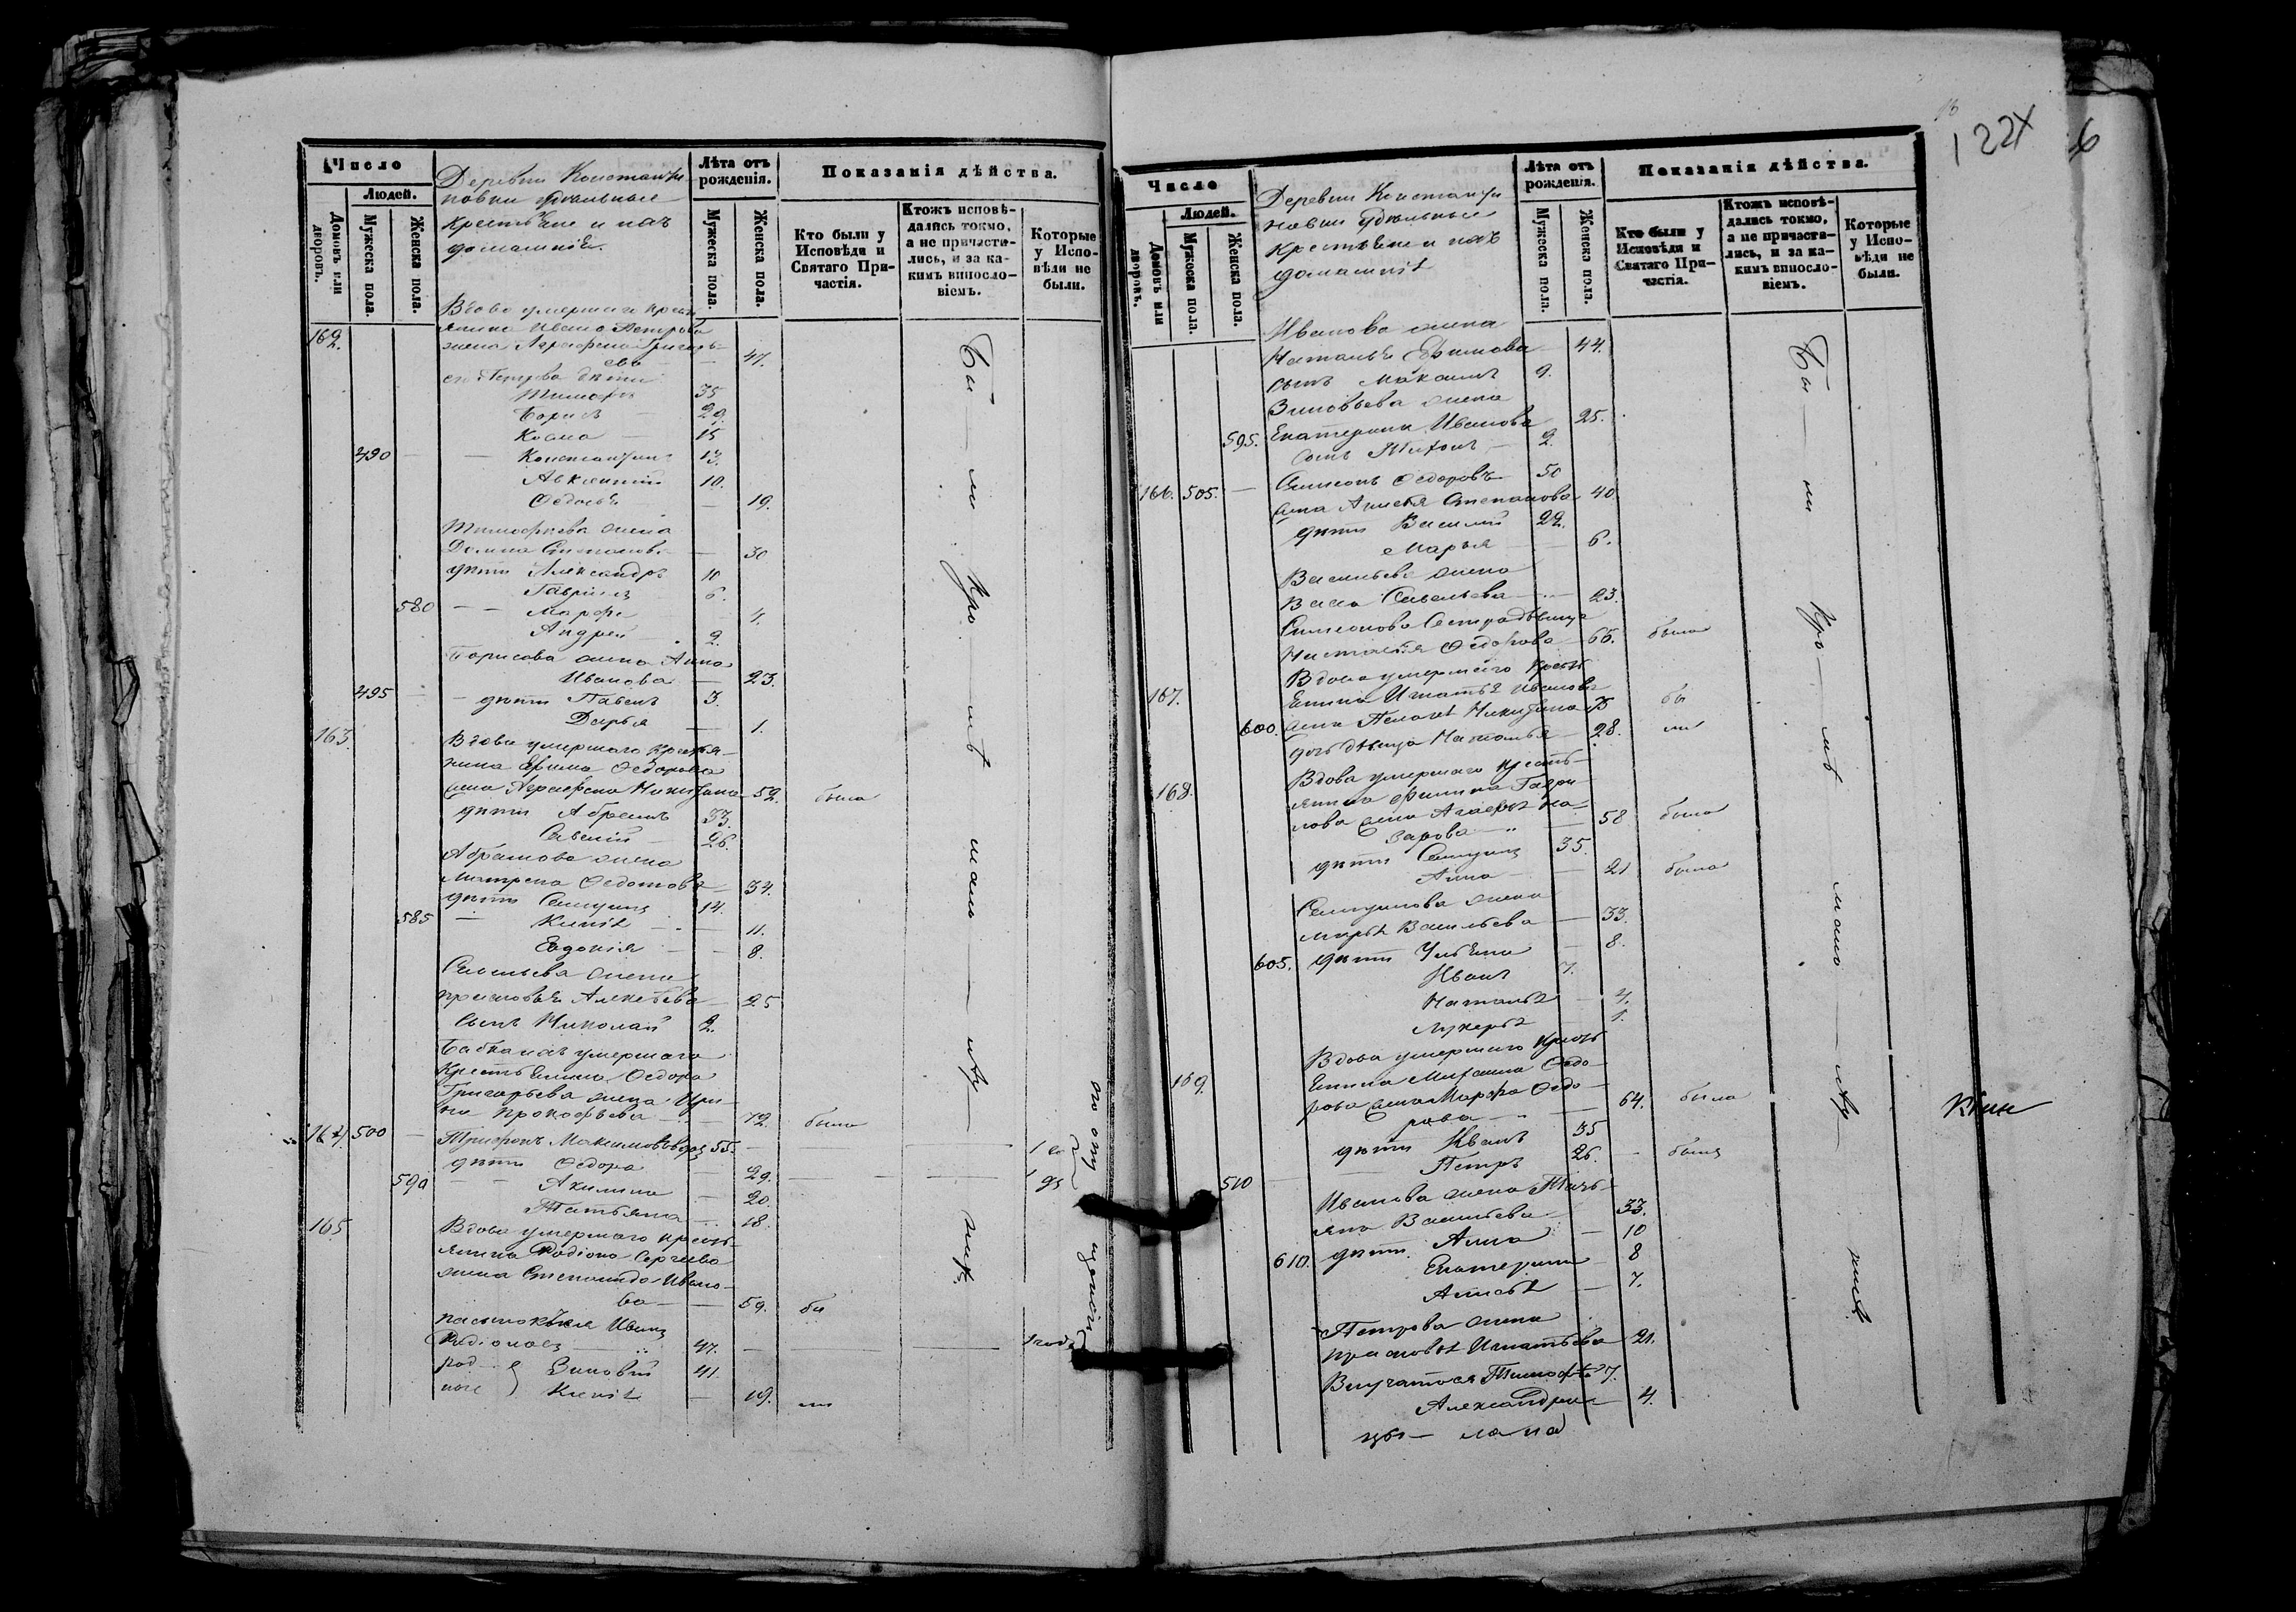 Число
Людей.
Домовъ или дворовъ.
Мужеска пола.
Женска пола.
Деревни Константи
новки удѣльные
крестьяне и ихъ
домашніе.
Лѣта отъ рожденія.
Мужеска пола.
Женска пола.
Показанія дѣйства.
Кто были у Исповѣди и Святаго При-частія.
Ктожъ исповѣ-дались токмо, а не причасти-лись, и за ка-кимъ винослo-віемъ.
Которые у Испо-вѣди не были.
Вдова умершаго крест
162. янина Ивана Петрова
жена Аграфена Григорь
ева — 47.
его Петрова дѣти
Тимофей 35
Борисъ 29.
Косма — 15
490 — Константинъ 13.
Авксентій 10.
Федосья — 19.
Тимофеева жена
Домна Степанова — 30
дѣти Александръ 10
Гавріилъ 6.
580 — Марфа 4.
Андрей 2.
Борисова жена Анна
Иванова — 23.
495 — дѣти Павелъ 3.
Дарья — 1.
163. Вдова умершаго крестья-
нина Ефима Федорова
жена Аграфена Никитина 52. была
дѣти Абрамъ 33.
Савелій — 26.
Абрамова жена
Матрена Федотова — 34.
дѣти Самуилъ 14.
585 — Ксенія — 11.
Евдокія — 8.
Савельева жена
Прасковья Алексѣева — 25
сынъ Николай 2.
умершаго
крестьянина Федора
Григорьева жена Ири-
на Прокофьева — 72. была
164. 500 — Трифонъ Максимовъ вдов 55. —
дѣти Федора 29.
590 — Акилина — 20.
Татьяна — 18.
165 Вдова умершаго кресть-
янина Родіона Сергѣева
жена Степанида Ивано-
ва — 59. бы
пасынокъ Иванъ
Родіоновъ 47. —
род
ные } Зиновій 41.
Ксенія — 19. ли
Бы ли Про мѣ
Число
Людей.
Домовъ или дворовъ.
Мужеска пола.
Женска пола.
Деревни Константи
новки удѣльные
крестьяне и ихъ
домашніе
Лѣта отъ рожденія.
Мужеска пола.
Женска пола.
Показанія дѣйства.
Кто были у Исповѣди и Святаго При-частія.
Ктожъ исповѣ-дались токмо, а не причасти-лись, и за ка-кимъ винослo-віемъ.
Которые у Испо-вѣди не были.
122
6
Иванова жена
Наталья Ефимова 44.
сынъ Максимъ 9.
Зиновьева жена
595. Екатерина Иванова 25.
сынъ Тихонъ — 2.
166. 505. — Симеонъ Федоровъ 50
жена Анисья Степанова 40.
дѣти Василій 22.
Марья — 6.
Васильева жена
Васса Савельева — 23.
Симеонова сестра дѣвица
Настасья Федорова — 65. была
Вдова умершаго крест
167. янина Игнатья Иванова
600. жена Пелагея Никитина 75 бы
дочь дѣвица Наталья — 28. ли
Вдова умершаго кресть-
168. янина Филипа Гаври-
лова жена Агафья На-
зарова — 58 была
дѣти Самуилъ 35.
Анна — 21 была
Самуилова жена
Марья Васильева — 33.
605. дѣти Ульяна — 8.
Иванъ 7.
Наталья — 4.
Лукерья 1.
Вдова умершаго крест
169. янина Михаила Федо-
рова жена Марфа Федо-
рова — 64. была
дѣти Иванъ 35
510 — Петръ 26. — былъ
Иванова жена Тать-
яна Васильева 33.
610. дѣти Анна — 10
Екатерина — 8
Анисья — 7.
Петрова жена
Прасковья Игнатьева 21.
Внучата Тимофей 7.
Александра 4.
Бы ли Про мѣ